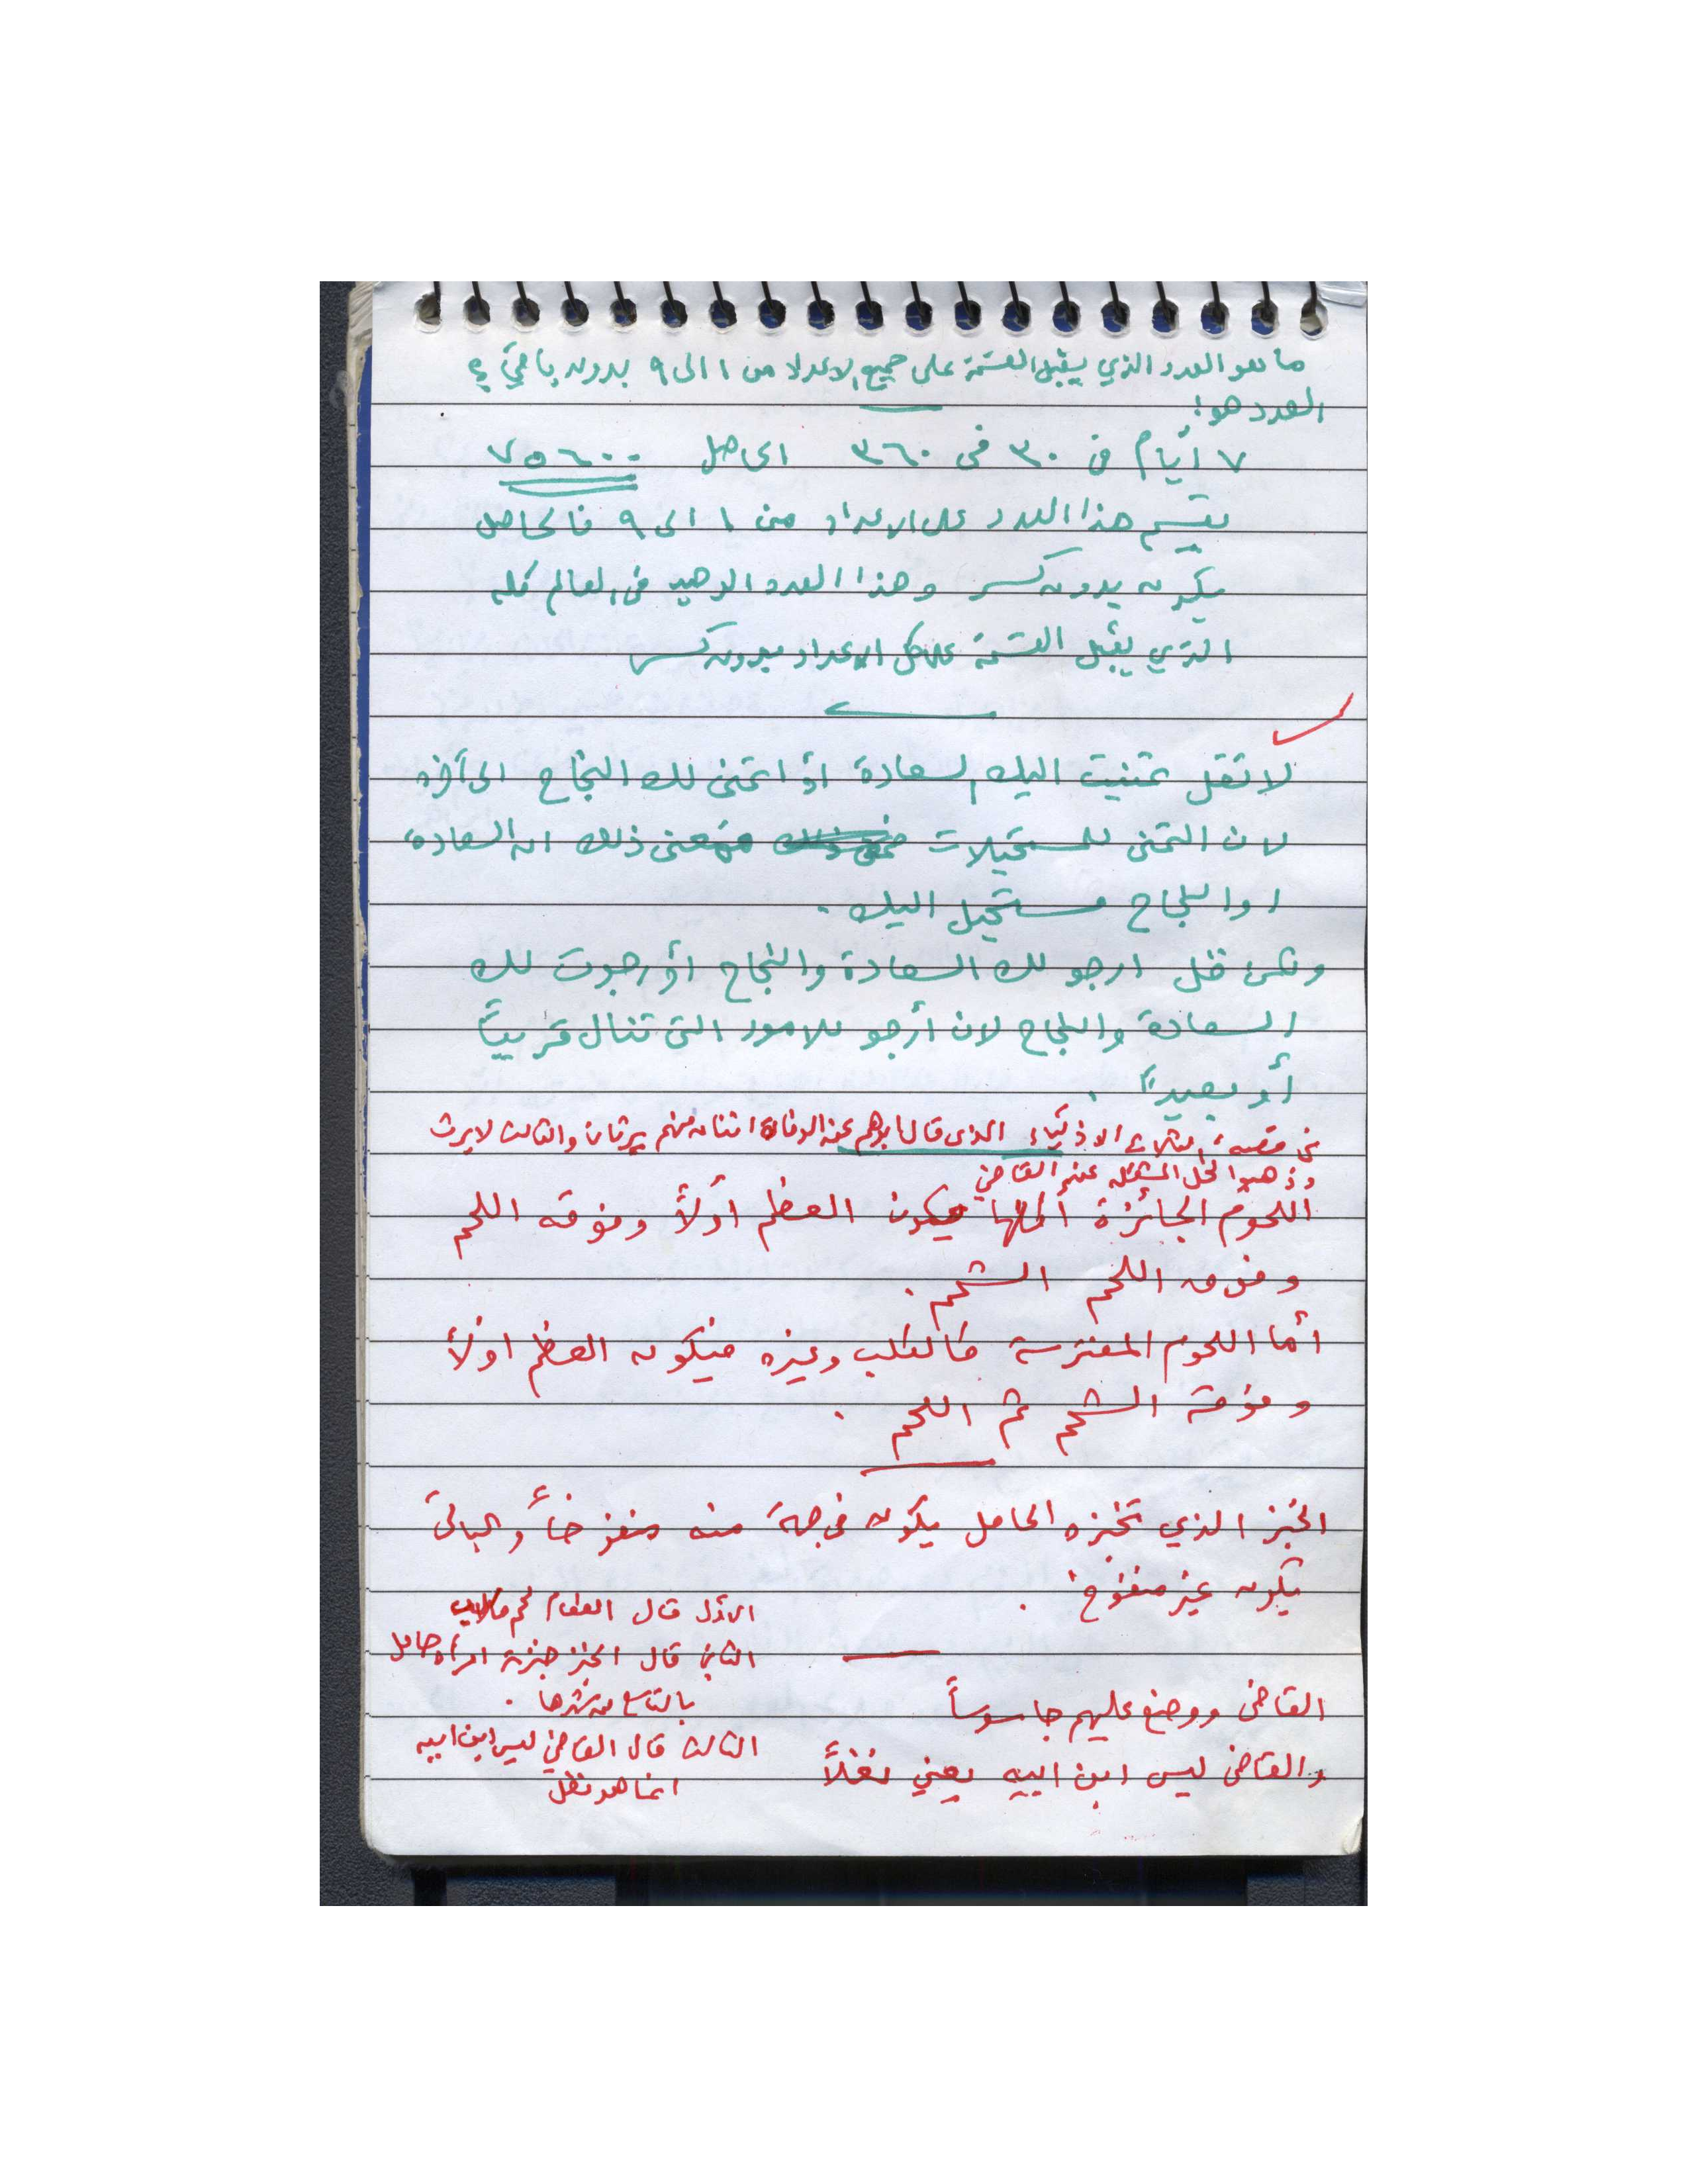 ما هو العدد الذي يقبل القسمة على جميع الاعداد من ١ الى ٩ بدون باقي؟
العدد هو:
٧ أيام في ٣٠ في ٣٦٠ الحاصل ٧٥٦٠٠
يقسم هذا العدد على الاعداد من ١ الى ٩ فالحاصل
يكون بدون كسر وهذا العدد الوحيد في العالم كله
الذي يقبل القسمة على كل الاعداد بدون كسر
لا تقل تمنيت اليك السعادة أو اتمنى لك النجاح الى آخره
لان التمني للمستحيلات فمعنى ذلك ان السعادة
او النجاح مستحيل اليك .
ولكن قل ارجو لك السعادة والنجاح أو رجوت لك
السعادة والنجاح لان أرجو للامور التي تنال قريباً
أو بعيداً .
في قصة الثلاثة الاذكياء الذي قال ابوهم عند الوفاة اثنان منهم يرثان والثالث لا يرث
وذهبوا لحل المشكله عند القاضي
اللحوم الجائزة أكلها يكون العظم اولاً وفوقه اللحم
وفوق اللحم الشحم .
أما اللحوم المفترسة كالكلب وغيره فيكون العظم اولاً
وفوقه الشحم ثم اللحم .
الخبز الذي تخبزه الحامل يكون في جهة منه منفوخاً والباقي
يكون غير منفوخ .
الاول قال الطعام لحم كلاب
الثاني قال الخبز خبزته امرأة حامل
بالتاسع من شهرها .
القاضي ووضع عليهم جاسوساً
الثالث قال القاضي ليس ابن ابيه
انما هو نغل
والقاضي ليس ابن ابيه يعني نغلاً